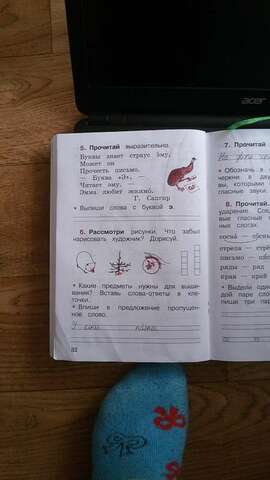 acer
5. Прочитай выразительно.
Буквы знает страус эму,
Может он
Прочесть письмо.
— Буква «Э», —
Читает эму, —
Эмма любит эскимо.
Г. Сапгир
• Выпиши слова с буквой э.
6. Рассмотри рисунки. Что забыл
нарисовать художник? Дорисуй.
• Какие предметы нужны для выши-
вания? Вставь слова-ответы в кле-
точки.
• Впиши в предложение пропущен-
ное слово.
32
7. Прочитай
• Обозначь в
черкни в дву
вы, которыми
гласные звуки.
8. Прочитай.
ударение. Сов
вые гласные
ных слогах.
сосна —
стрела —
письмо —
ряды — ряд
края — край
• Выдели одна
дой паре слов
пиши три пар